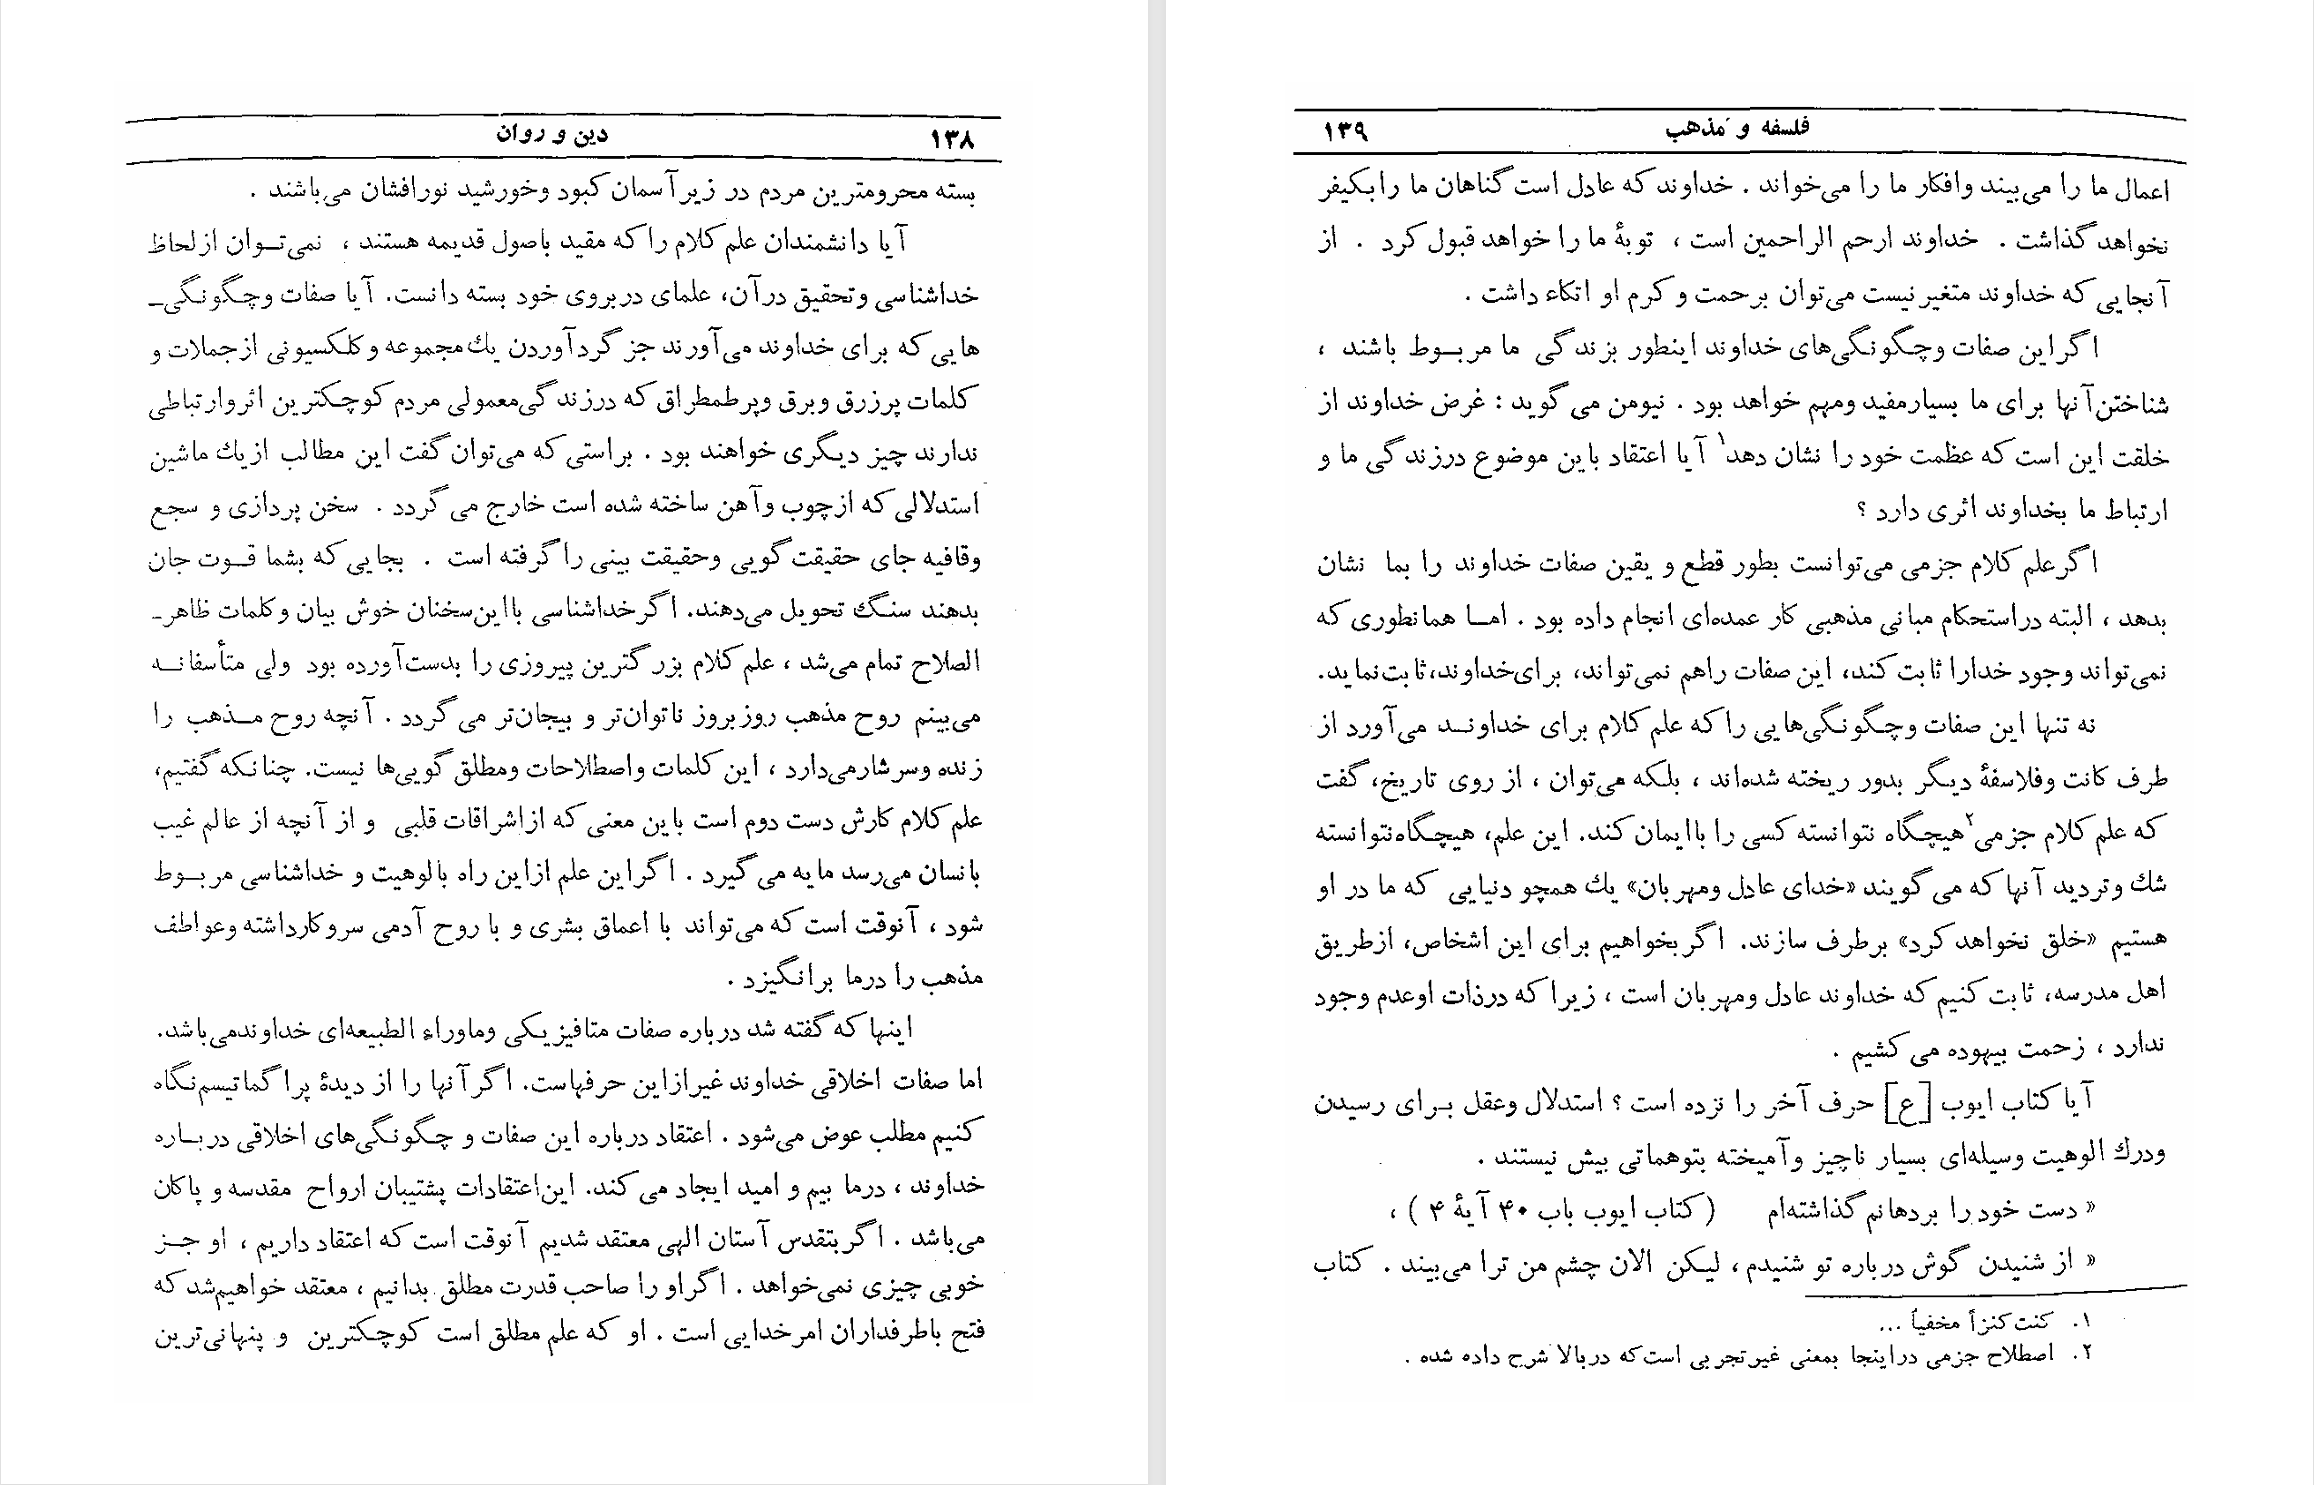 ۱۳۸ دین و روان
بسته محرومترین مردم در زیر آسمان کبود وخورشید نورافشان می‌باشند .
آیا دانشمندان علم کلام را که مقید باصول قدیمه هستند ، نمی‌تـوان ازلحاظ
خداشناسی وتحقیق درآن، علمای دربروی خود بسته دانست. آیا صفات وچگونگی‌ـ
هایی که برای خداوند می‌آورند جز گردآوردن یك مجموعه وکلکسیونی ازجملات و
کلمات پرزرق وبرق وپرطمطراق که درزندگی‌معمولی مردم کوچکترین اثروارتباطی
ندارند چیز دیگری خواهند بود . براستی که می‌توان گفت این مطالب ازیك ماشین
استدلالی که ازچوب وآهن ساخته شده است خارج می گردد . سخن پردازی و سجع
وقافیه جای حقیقت گویی وحقیقت بینی را گرفته است . بجایی که بشما قـوت جان
بدهند سنگ تحویل می‌دهند. اگرخداشناسی بااین‌سخنان خوش بیان وکلمات ظاهرـ
الصلاح تمام می‌شد ، علم کلام بزرگترین پیروزی را بدست‌آورده بود ولی متأسفانـه
می‌بینم روح مذهب روزبروز ناتوان‌تر و بیجان‌تر می گردد . آنچه روح مـذهب را
زنده وسرشارمی‌دارد ، این کلمات واصطلاحات ومطلق گویی‌ها نیست. چنانکه گفتیم،
علم کلام کارش دست دوم است باین معنی که ازاشراقات قلبی و از آنچه از عالم غیب
بانسان می‌رسد مایه می گیرد . اگراین علم ازاین راه بالوهیت و خداشناسی مربـوط
شود ، آنوقت است که می‌تواند با اعماق بشری و با روح آدمی سروکارداشته وعواطف
مذهب را درما برانگیزد .
اینها که گفته شد درباره صفات متافیزیکی وماوراء الطبیعه‌ای خداوندمی‌باشد.
اما صفات اخلاقی خداوند غیرازاین حرفهاست. اگرآنها را از دیدهٔ پراگماتیسم‌نگاه
کنیم مطلب عوض می‌شود . اعتقاد درباره این صفات و چگونگی‌های اخلاقی دربـاره
خداوند ، درما بیم و امید ایجاد می کند. این‌اعتقادات پشتیبان ارواح مقدسه و پاکان
می‌باشد . اگربتقدس آستان الهی معتقد شدیم آنوقت است که اعتقاد داریم ، او جـز
خوبی چیزی نمی‌خواهد . اگراو را صاحب قدرت مطلق بدانیم ، معتقد خواهیم‌شد که
فتح باطرفداران امرخدایی است . او که علم مطلق است کوچکترین و پنهانی‌ترین
فلسفه و مذهب ۱۳۹
اعمال ما را می‌بیند وافکار ما را می‌خواند . خداوند که عادل است گناهان ما را بکیفر
نخواهد گذاشت . خداوند ارحم الراحمین است ، توبهٔ ما را خواهد قبول کرد . از
آنجایی که خداوند متغیر نیست می‌توان برحمت و کرم او اتکاء داشت .
اگراین صفات وچگونگی‌های خداوند اینطور بزندگی ما مربـوط باشند ،
شناختن‌آنها برای ما بسیارمفید ومهم خواهد بود . نیومن می گوید : غرض خداوند از
خلقت این است که عظمت خود را نشان دهد۱ آیا اعتقاد باین موضوع درزندگی ما و
ارتباط ما بخداوند اثری دارد ؟
اگرعلم کلام جزمی می‌توانست بطور قطع و یقین صفات خداوند را بما نشان
بدهد ، البته دراستحکام مبانی مذهبی کار عمده‌ای انجام داده بود . امـا همانطوری که
نمی‌تواند وجود خدارا ثابت کند، این صفات راهم نمی‌تواند، برای‌خداوند،ثابت‌نماید.
نه تنها این صفات وچگونگی‌هایی را که علم کلام برای خداونـد می‌آورد از
طرف کانت وفلاسفهٔ دیگر بدور ریخته شده‌اند ، بلکه می‌توان ، از روی تاریخ، گفت
که علم کلام جزمی۲ هیچگاه نتوانسته کسی را باایمان کند. این علم، هیچگاه‌نتوانسته
شك وتردید آنها که می گویند «خدای عادل ومهربان» یك همچو دنیایی که ما در او
هستیم «خلق نخواهد کرد» برطرف سازند. اگربخواهیم برای این اشخاص، ازطریق
اهل مدرسه، ثابت کنیم که خداوند عادل ومهربان است ، زیرا که درذات اوعدم وجود
ندارد ، زحمت بیهوده می کشیم .
آیا کتاب ایوب [ع] حرف آخر را نزده است ؟ استدلال وعقل بـرای رسیدن
ودرك الوهیت وسیله‌ای بسیار ناچیز وآمیخته بتوهماتی بیش نیستند .
« دست خود را بردهانم گذاشته‌ام ( کتاب ایوب باب ۴۰ آیهٔ ۴ ) ،
« از شنیدن گوش درباره تو شنیدم ، لیکن الان چشم من ترا می‌بیند . کتاب
۱. کنت کنزاً مخفیاً ...
۲. اصطلاح جزمی دراینجا بمعنی غیرتجربی است‌که دربالا شرح داده شده .